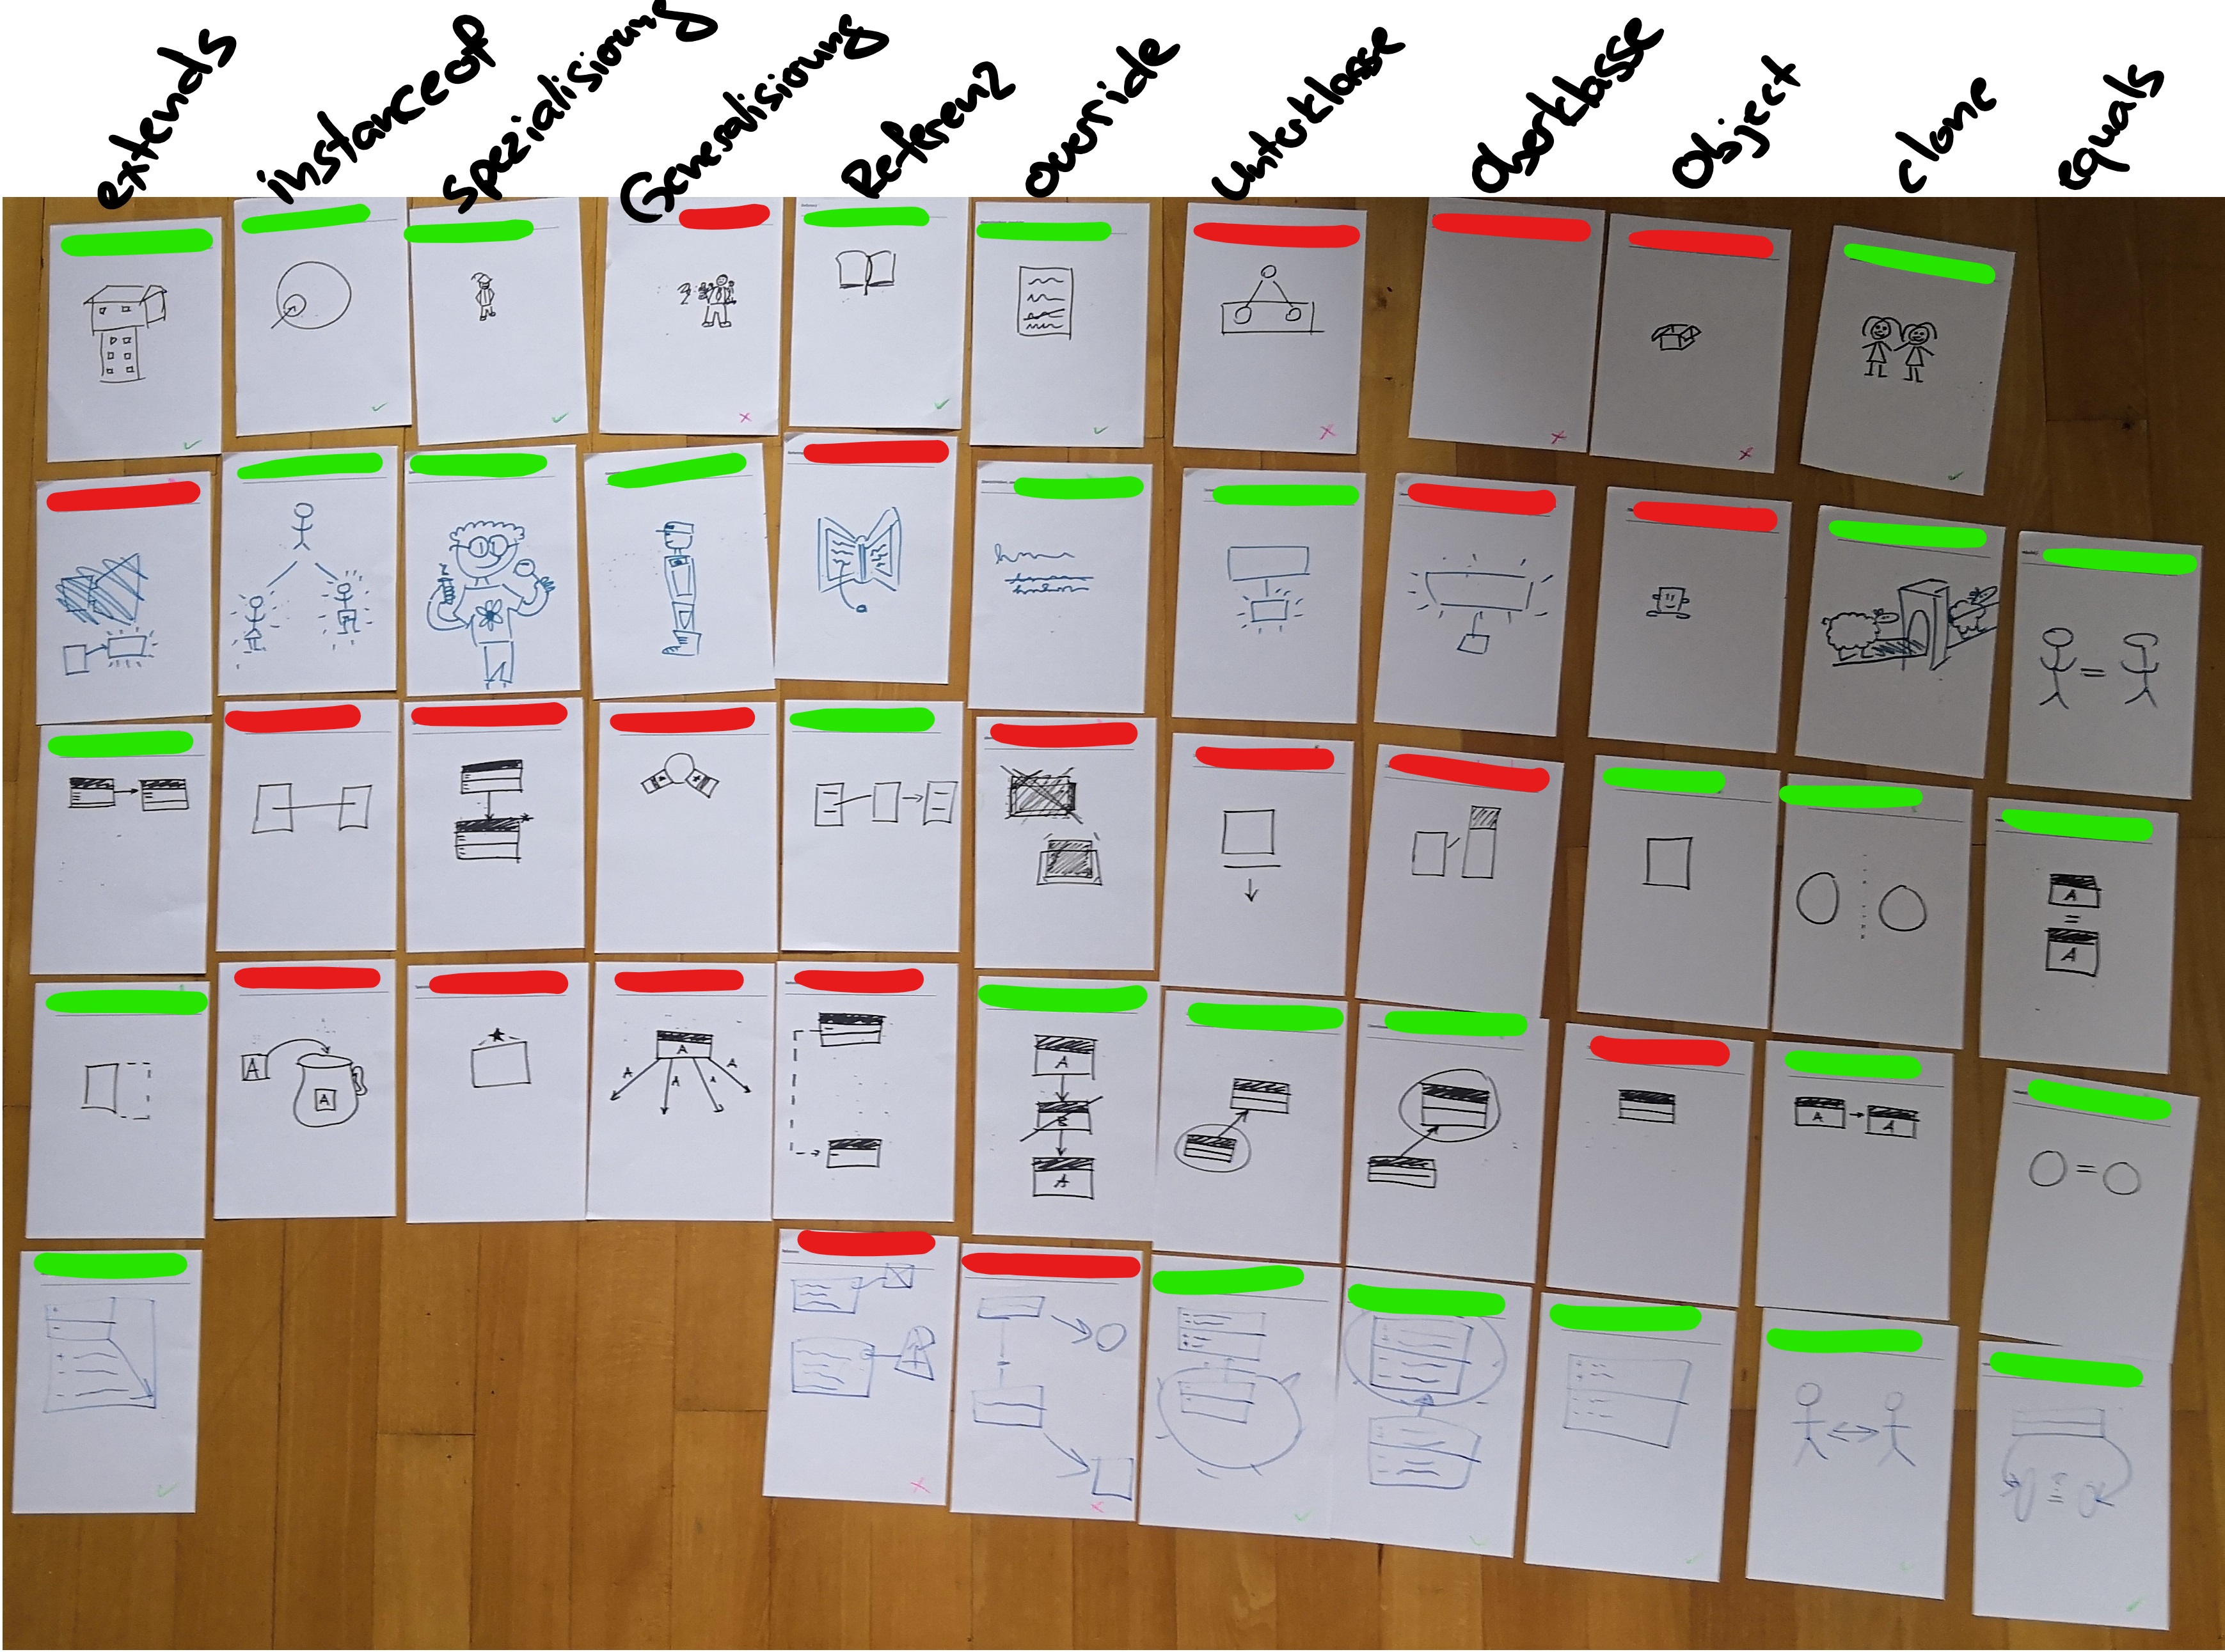 extends
instanceof
Spezialisierung
Generalisierung
Referenz
override
Unterklasse
Oberklasse
Object
clone
equals
=
A
=
A
A
A
A
A
A
A
A
A
B
A
A
A
=